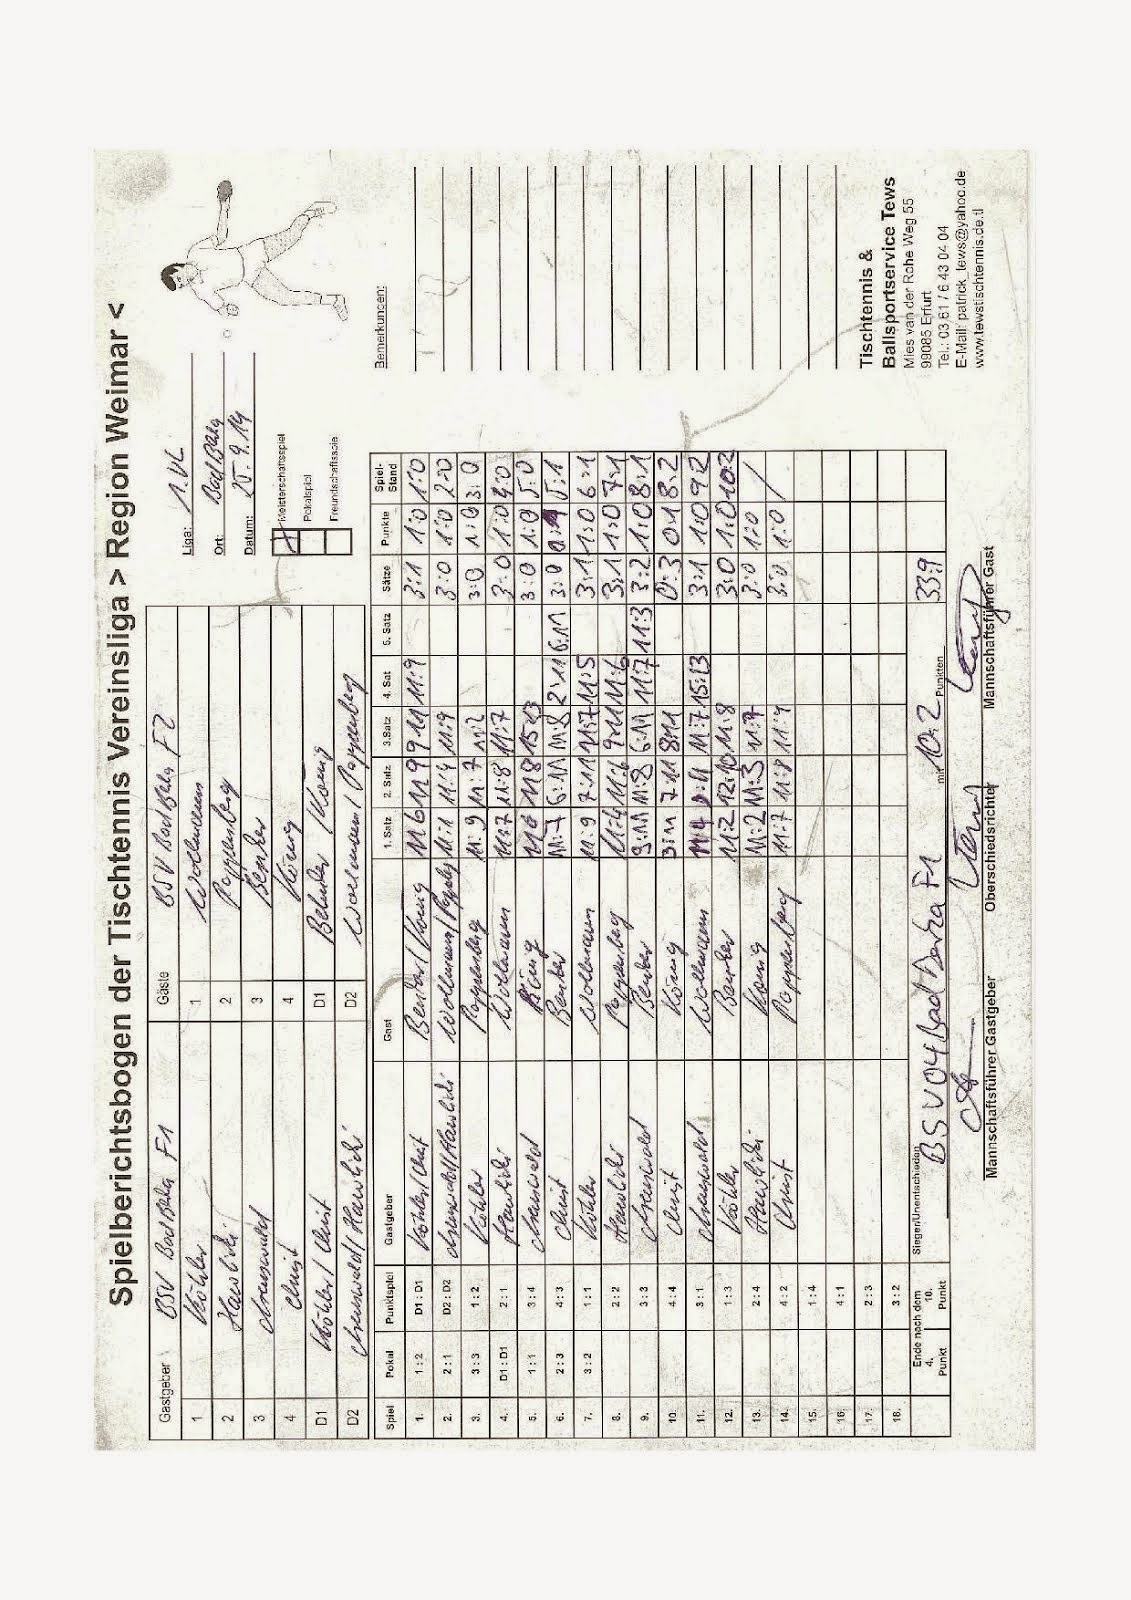 Spielberichtsbogen der Tischtennis Vereinsliga > Region Weimar <
Gastgeber BSV Bad Berka F1 Gäste BSV Bad Berka F2
1 Köhler 1 Wollmann
2 Hawlicki 2 Poppenberg
3 3 Bender
4 Christ 4 König
D1 Köhler / Christ D1 Bender / König
D2 / Hawlicki D2 Wollmann / Poppenberg
Liga: 1.VL
Ort: Bad Berka
Datum: 25.9.14
Meisterschaftsspiel
Pokalspiel
Freundschaftsspie
Spiel Pokal Punktspiel Gastgeber Gast 1. Satz 2. Satz 3.Satz 4. Sat 5. Satz Sätze Punkte Spiel-Stand
1. 1 : 2 D1 : D1 Köhler/Christ Bender/König 11 6 11 9 9 11 11:9 3:1 1:0 1:0
2. 2 : 1 D2 : D2 /Hawlicki Wollmann/ 11:9 3:0 1:0 2:0
3. 3 : 3 1 : 2 Köhler Poppenberg 11:9 11:7 11:2 3:0 1:0 3:0
4. D1 : D1 2 : 1 Hawlicki Wollmann 11:7 11:8 11:7 3:0 1:0 4:0
5. 1 : 1 3 : 4 König 11 6 11 8 15 13 3:0 1:0 5:0
6. 2 : 3 4 : 3 Christ Bender 11:7 6:11 11:8 2:11 6:11 5:1
7. 3 : 2 1 : 1 Köhler Wollmann 11:9 7:11 11:7 11:5 3:1 1:0 6:1
8. 2 : 2 Hawlicki Poppenberg 11:4 11:6 9:11 11:6 3:1 1:0 7:1
9. 3 : 3 Bender 9:11 11:8 6:11 11:7 11:3 3:2 1:0 8:1
10. 4 : 4 Christ König 3:11 7:11 8:11 0:3 0:1 8:2
11. 3 : 1 Wollmann 11:7 15:13 3:1 1:0 9:2
12. 1 : 3 Köhler Bender 11:2 12:10 11:8 3:0 1:0 10:2
13. 2 : 4 Hawlicki König 11:2 11:3 3:0 1:0 /
14. 4 : 2 Christ Poppenberg 11:7 11:8 3:0 1:0
15. 1 : 4
16. 4 : 1
17. 2 : 3
18. 3 : 2
Ende nach dem
4. Punkt 10. Punkt
Sieger/Unentschieden BSV 04 Bad Berka F1 mit 10:2 Punkten 33:9
Mannschaftsführer Gastgeber Oberschiedsrichter Mannschaftsführer Gast
Bemerkungen:
Tischtennis &
Ballsportservice Tews
Mies van der Rohe Weg 55
99085 Erfurt
Tel.: 03 61 / 6 43 04 04
E-Mail: patrick_tews@yahoo.de
www.tewstischtennis.de.tl